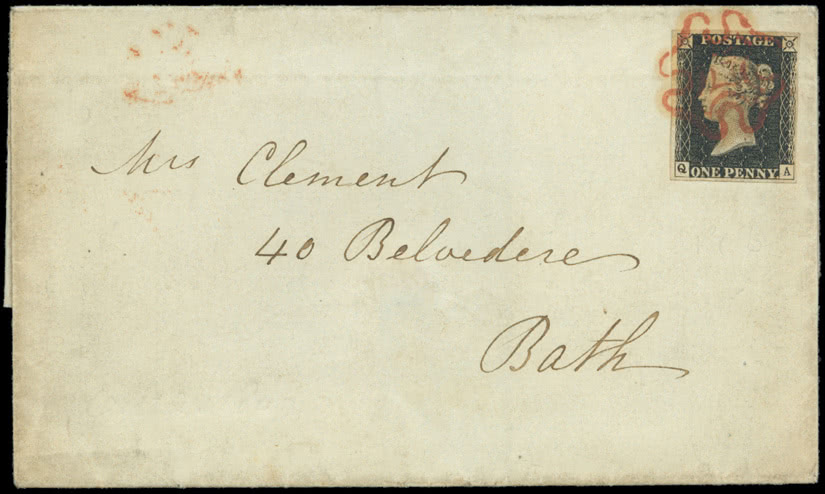 POSTAGE
Q ONE PENNY A
Mrs Clement
40 Belvedere
Bath